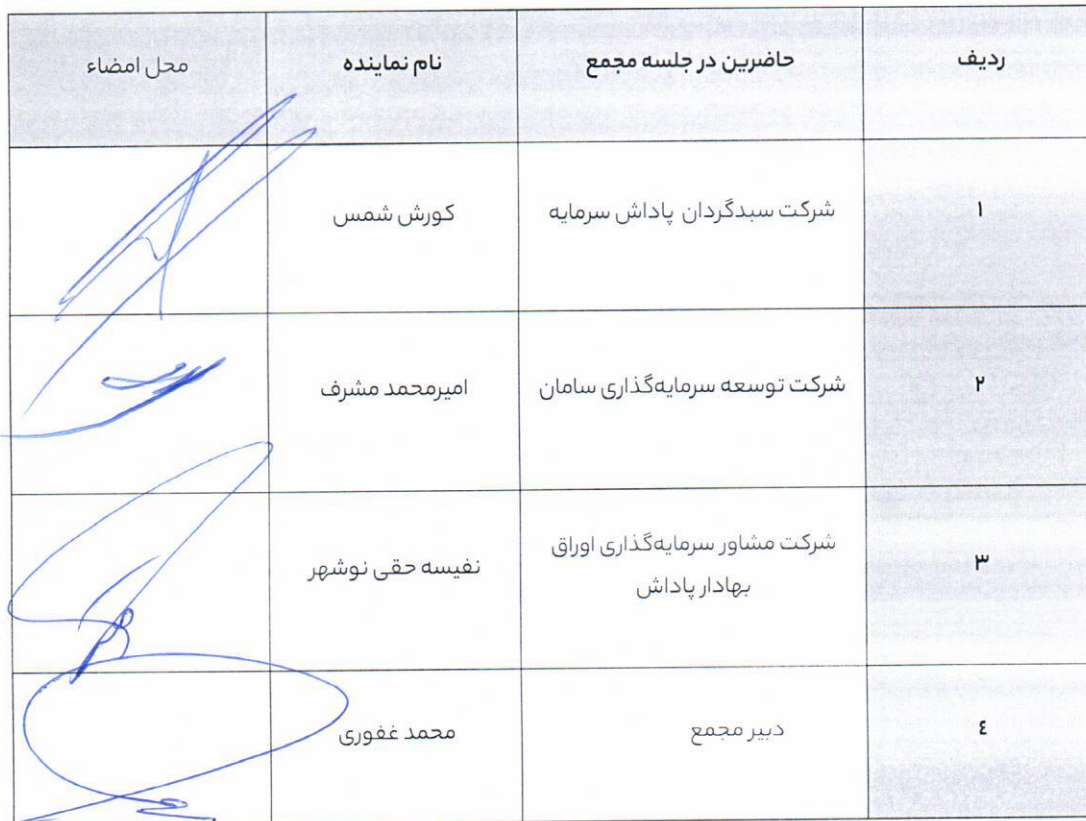 ردیف	حاضرین در جلسه مجمع	نام نماینده	محل امضاء
۱	شرکت سبدگردان پاداش سرمایه	کورش شمس
۲	شرکت توسعه سرمایه‌گذاری سامان	امیرمحمد مشرف
۳	شرکت مشاور سرمایه‌گذاری اوراق	نفیسه حقی نوشهر
بهادار پاداش
٤	دبیر مجمع	محمد غفوری